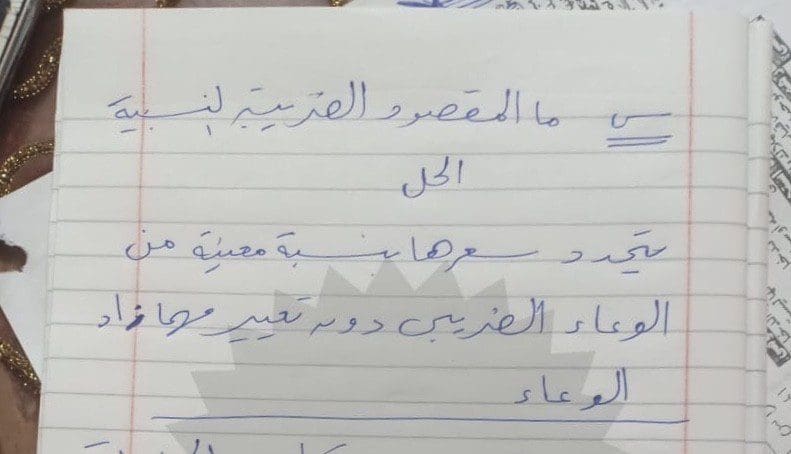 س ما المقصود الضريبة النسبية
الحل
يتحدد سعرها بنسبة معينة من
الوعاء الضريبي دون تغيير مهما زاد
الوعاء